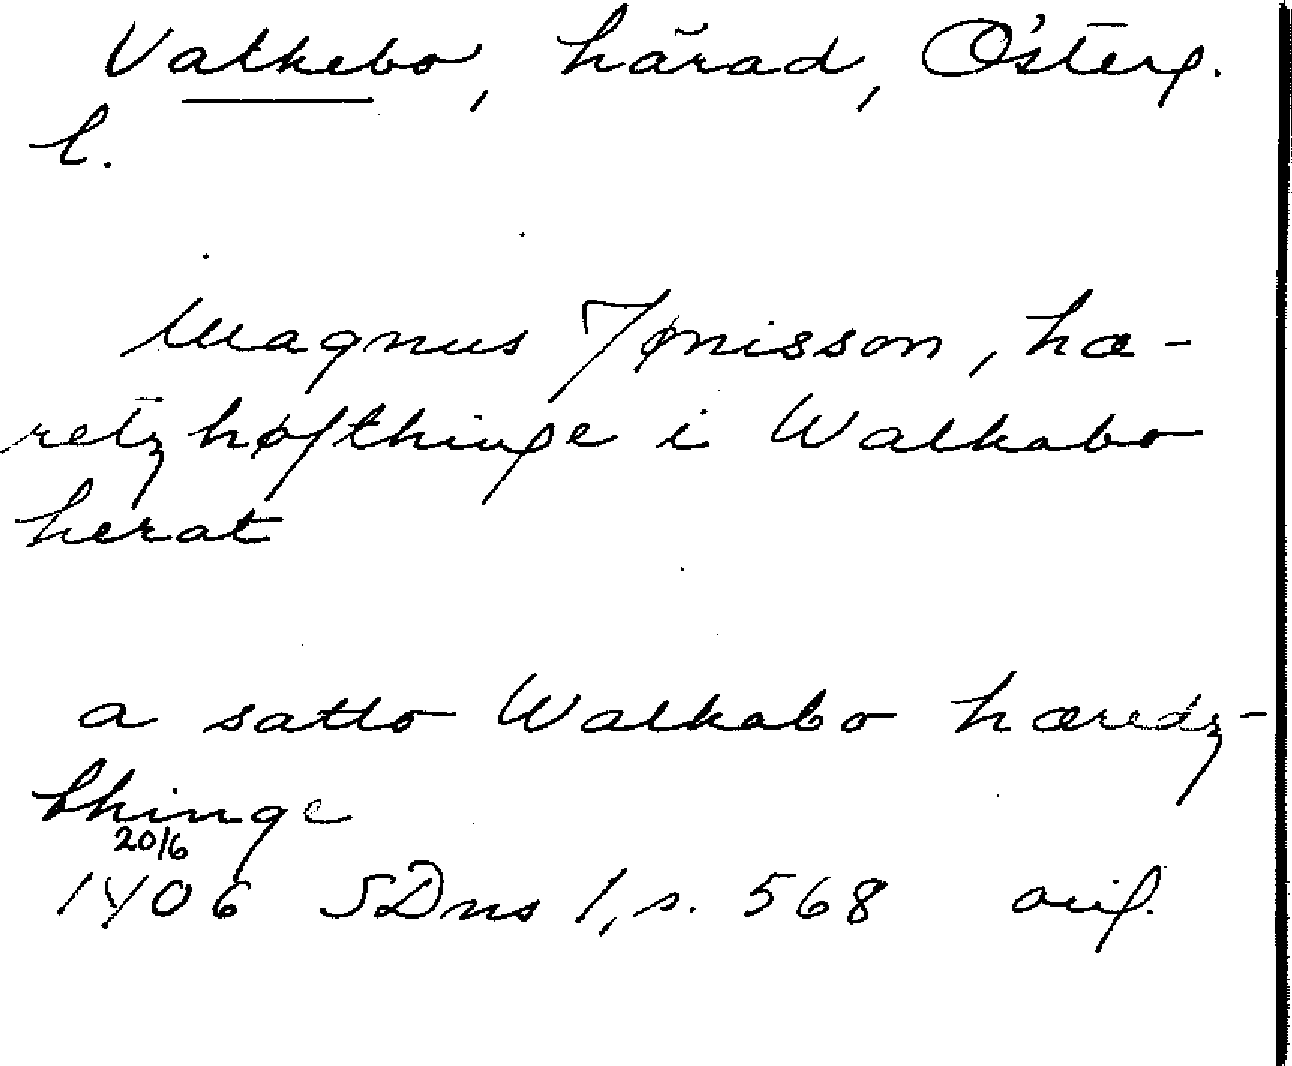 Valkebo, härad, Österg.
l.
Magnus Jønisson, hæ-
retzhøfthinge i Walkabo
herat
a satto Walkabo hæredz-
thinge
20/6
1406 SDns 1, s. 568 orig.